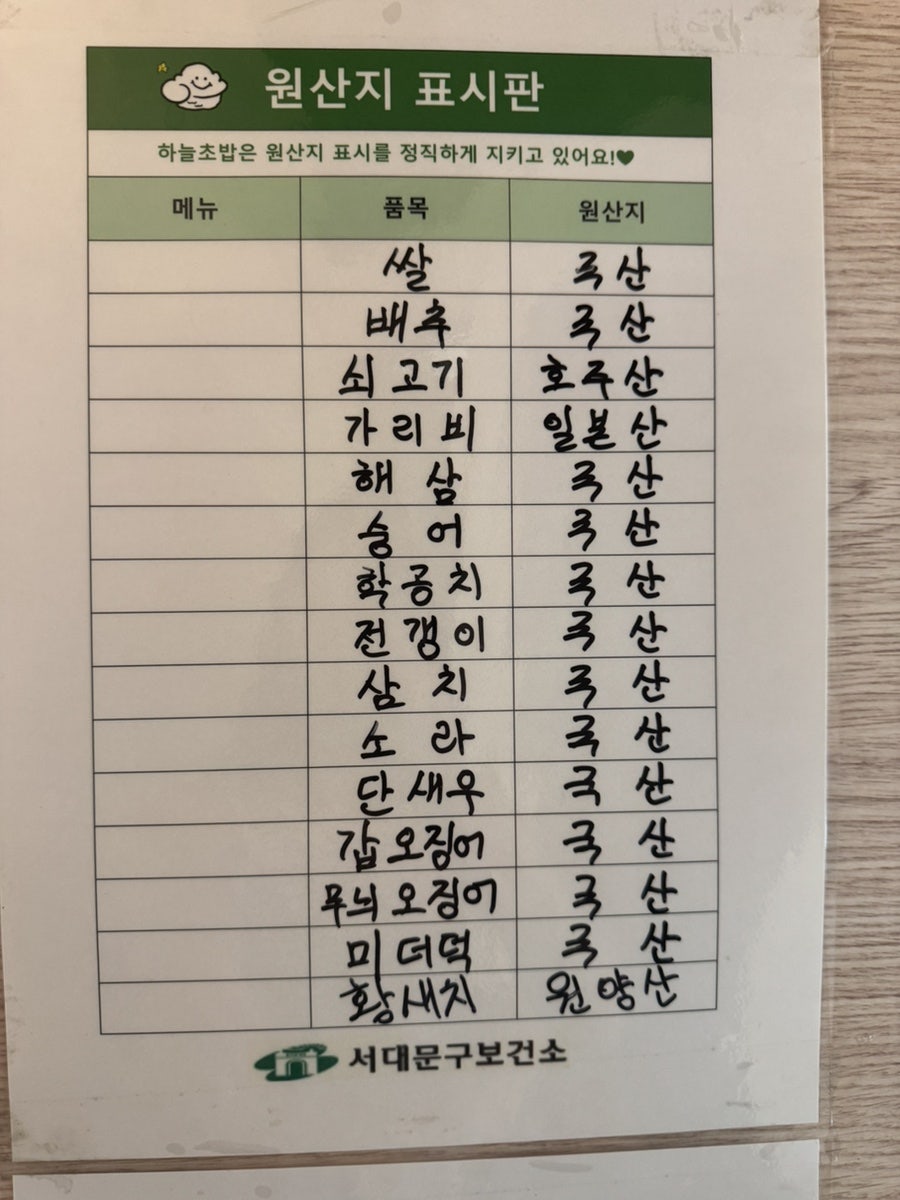 원산지 표시판
하늘초밥은 원산지 표시를 정직하게 지키고 있어요!♥
메뉴 품목 원산지
쌀 국산
배추 국산
쇠고기 호주산
가리비 일본산
해삼 국산
숭어 국산
학공치 국산
전갱이 국산
삼치 국산
소라 국산
단새우 국산
갑오징어 국산
무늬오징어 국산
미더덕 국산
황새치 원양산
서대문구보건소